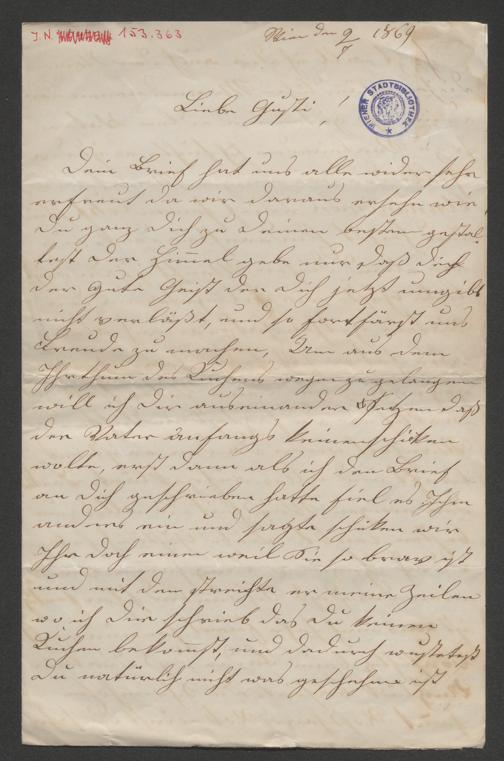 J.N. 153.363
Wien den 9/7 1869
WIENER STADTBIBLIOTHEK
Liebe Gusti!
Dein Brief hat uns alle wider sehr
erfreut da wir daraus ersehn wie
Du ganz Dich zu Deinen besten gestal-
test der Himmel gebe nur daß dich
der gute Geist der Dich jetzt umgibt
nicht verläßt, und so fortfärst uns
Freude zu machen, Um aus dem
Irthum des Kuchens wegen zu gelangen
will ich Dir auseinander Setzen daß
der Vater anfangs keinen schiken
wolte, erst dann als ich den Brief
an Dich geschrieben hatte fiel es Ihm
anders ein und sagte schiken wir
Ihr doch einen weil Sie so brav ist
und mit dem streichte er meine Zeilen
wo ich Dir schrieb das Du keinen
Kuchen bekommst, und dadurch wustetest
Du natürlich nicht was geschehen ist